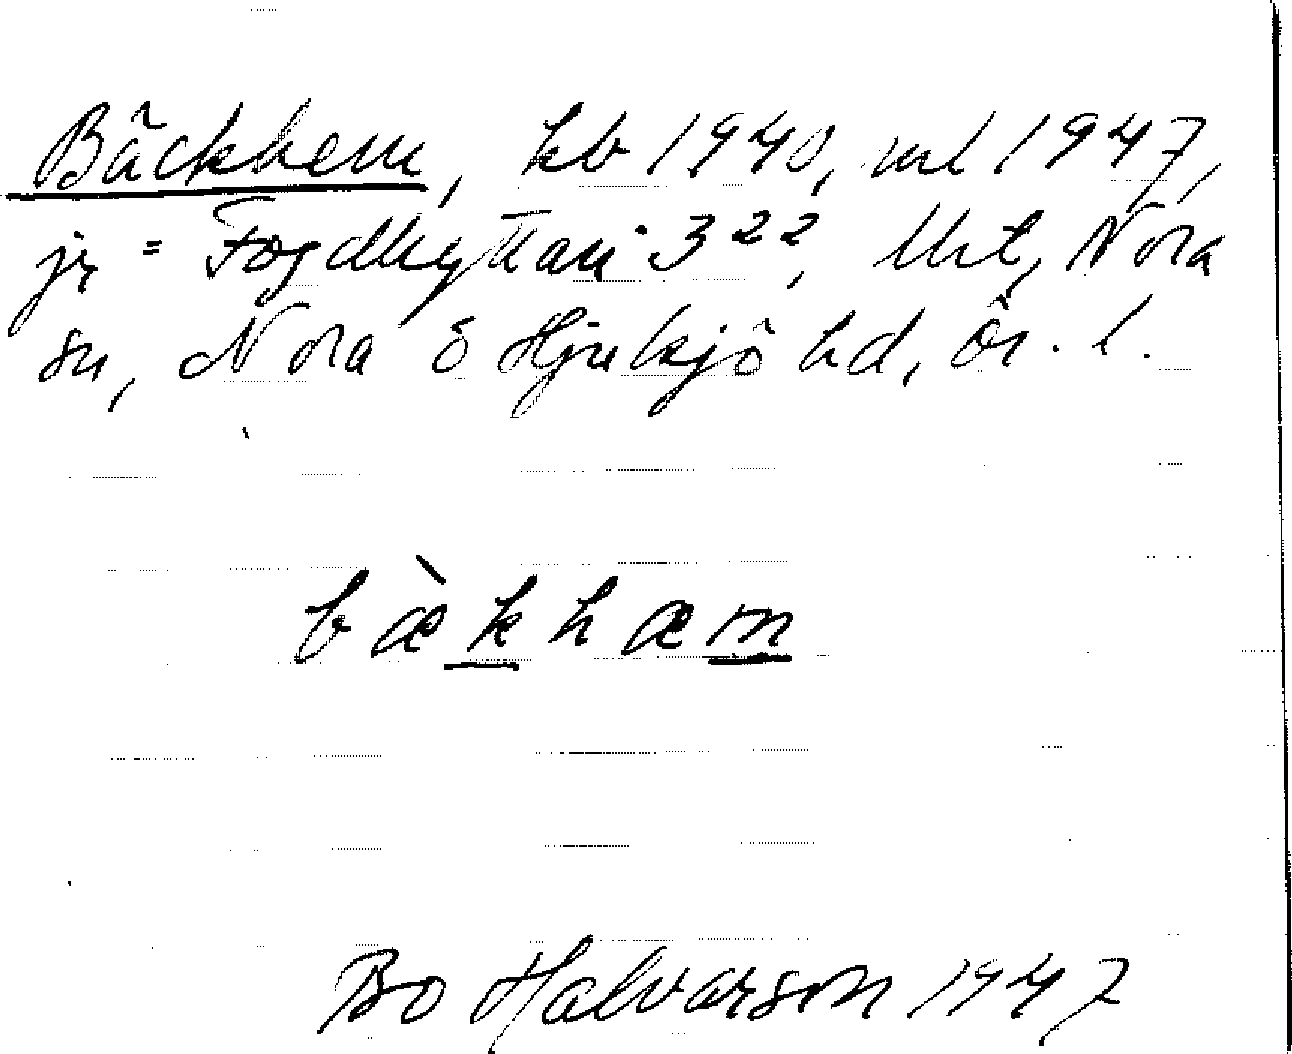 Bäckhem, kb 1940, ml 1947,
jr = Fogdhyttan 3²², Nora
sn, Nora o Hjulsjö hd, Ör. l.
bæ̀khæm
Bo Halvarson 1947